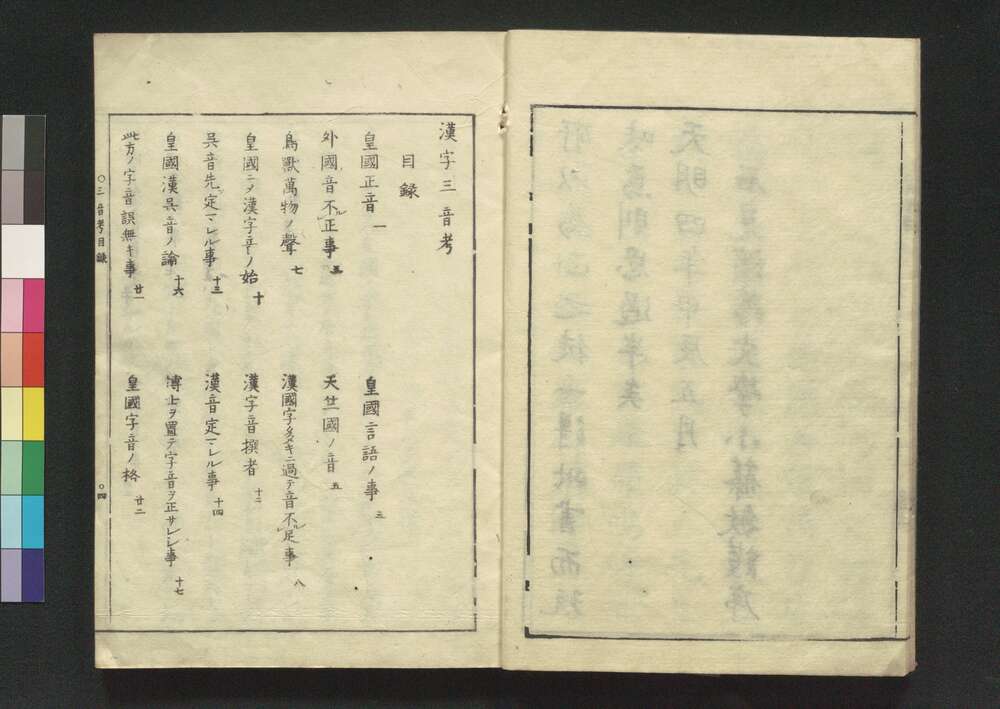 漢字三音考
目錄
皇國正音 一
皇國言語ノ事 三
外國音不正事 三
天竺國ノ音 五
鳥獸萬物ノ聲 七
漢國字多キニ過テ音不足事 八
皇國ニメ漢字音ノ始 十
漢字音撰者 十二
呉音先定マレル事 十三
漢音定マレル事 十四
皇國漢呉音ノ論 十六
博士ヲ置テ字音ヲ正サレシ事 十七
此方ノ字音誤無キ事 廿一
皇國字音ノ格 廿二
○三音考目錄
○四